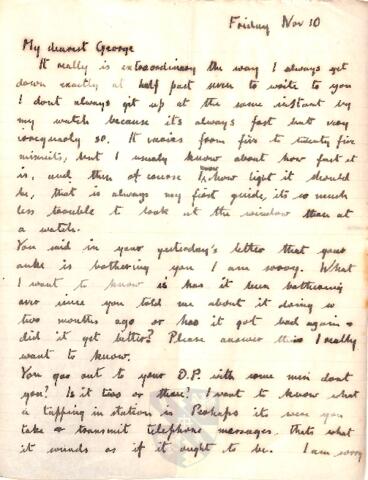 Friday Nov 10
My dearest George
It really is extraordinary the way I always get
down exactly at half past seven to write to you
I dont always get up at the same instant by
my watch because its always fast but very
irregularly so. It varies from five to twenty five
minuits, but I usualy know about how fast it
is, and then of course I know how light it should
be, that is always my first guide, its so much
less trouble to look at the window than at
a watch.
You said in your yesterday's letter that your
ankle is bothering you I am sorry. What
I want to know is has it been bothering
ever since you told me about it doing so
two months ago or has it got bad again &
did it get better? Please answer this I really
want to know.
You gas out to your O.P. with some men dont
you? Is it two or three? I want to know what
a tapping in station is Perhaps its were you
take & transmit telephone messages. thats what
it sounds as if it ought to be. I am sorry